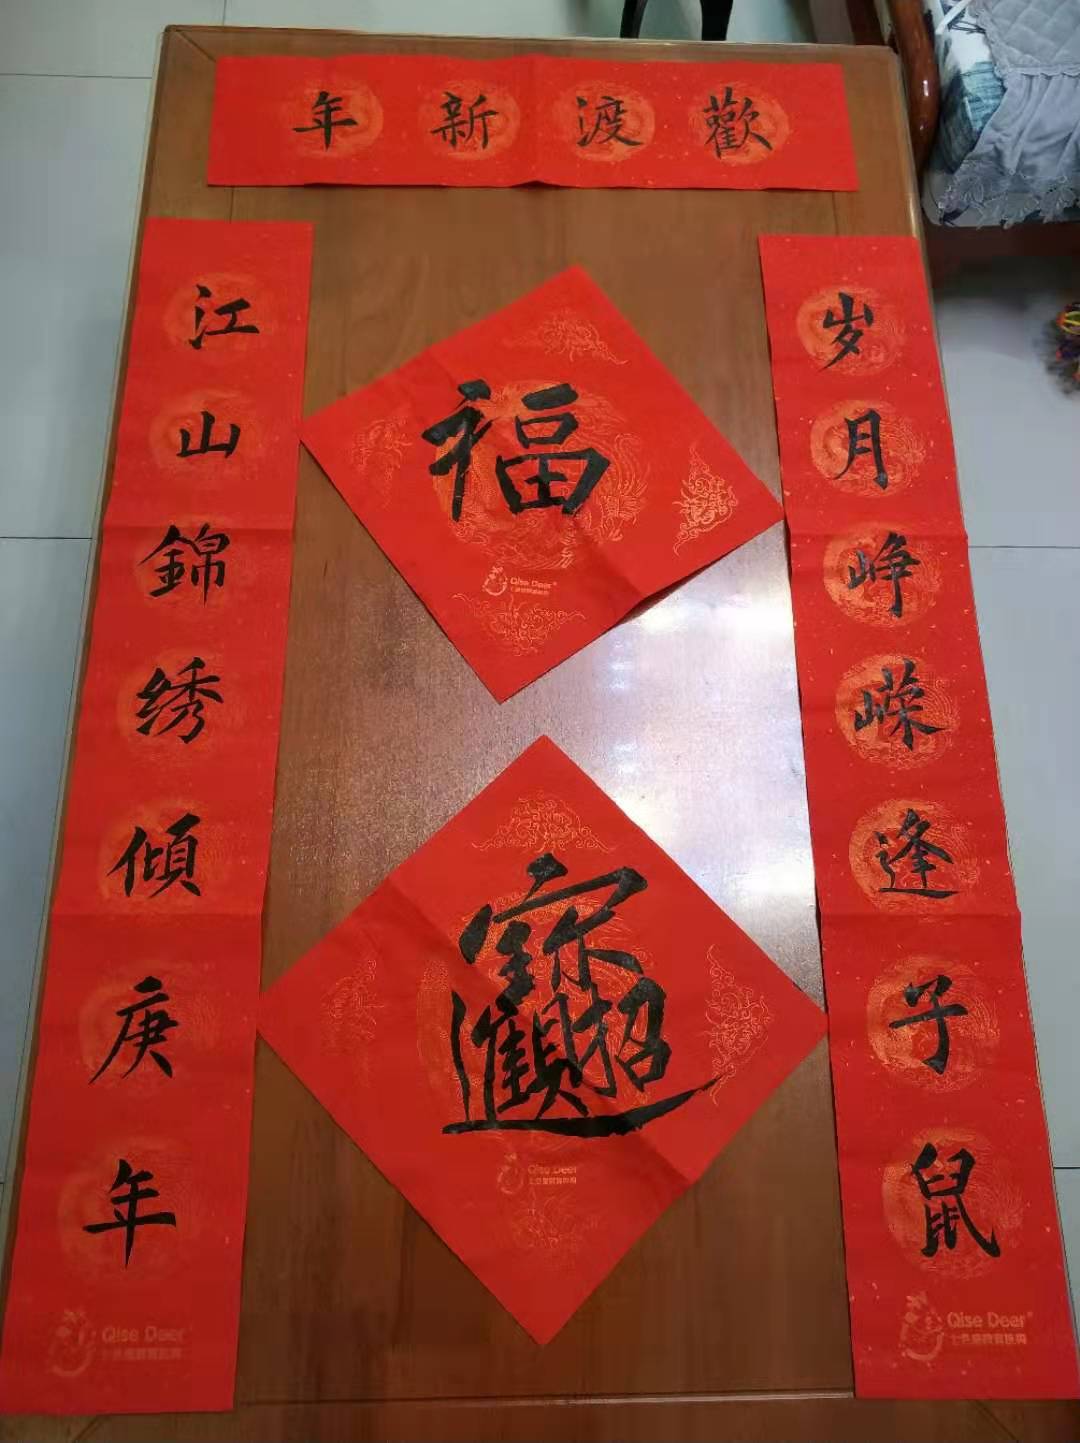 歡渡新年
岁月峥嵘逢子鼠
江山錦绣傾庚年
福
招財進寳
Qise Deer
Qise Deer
Qise Deer
Qise Deer